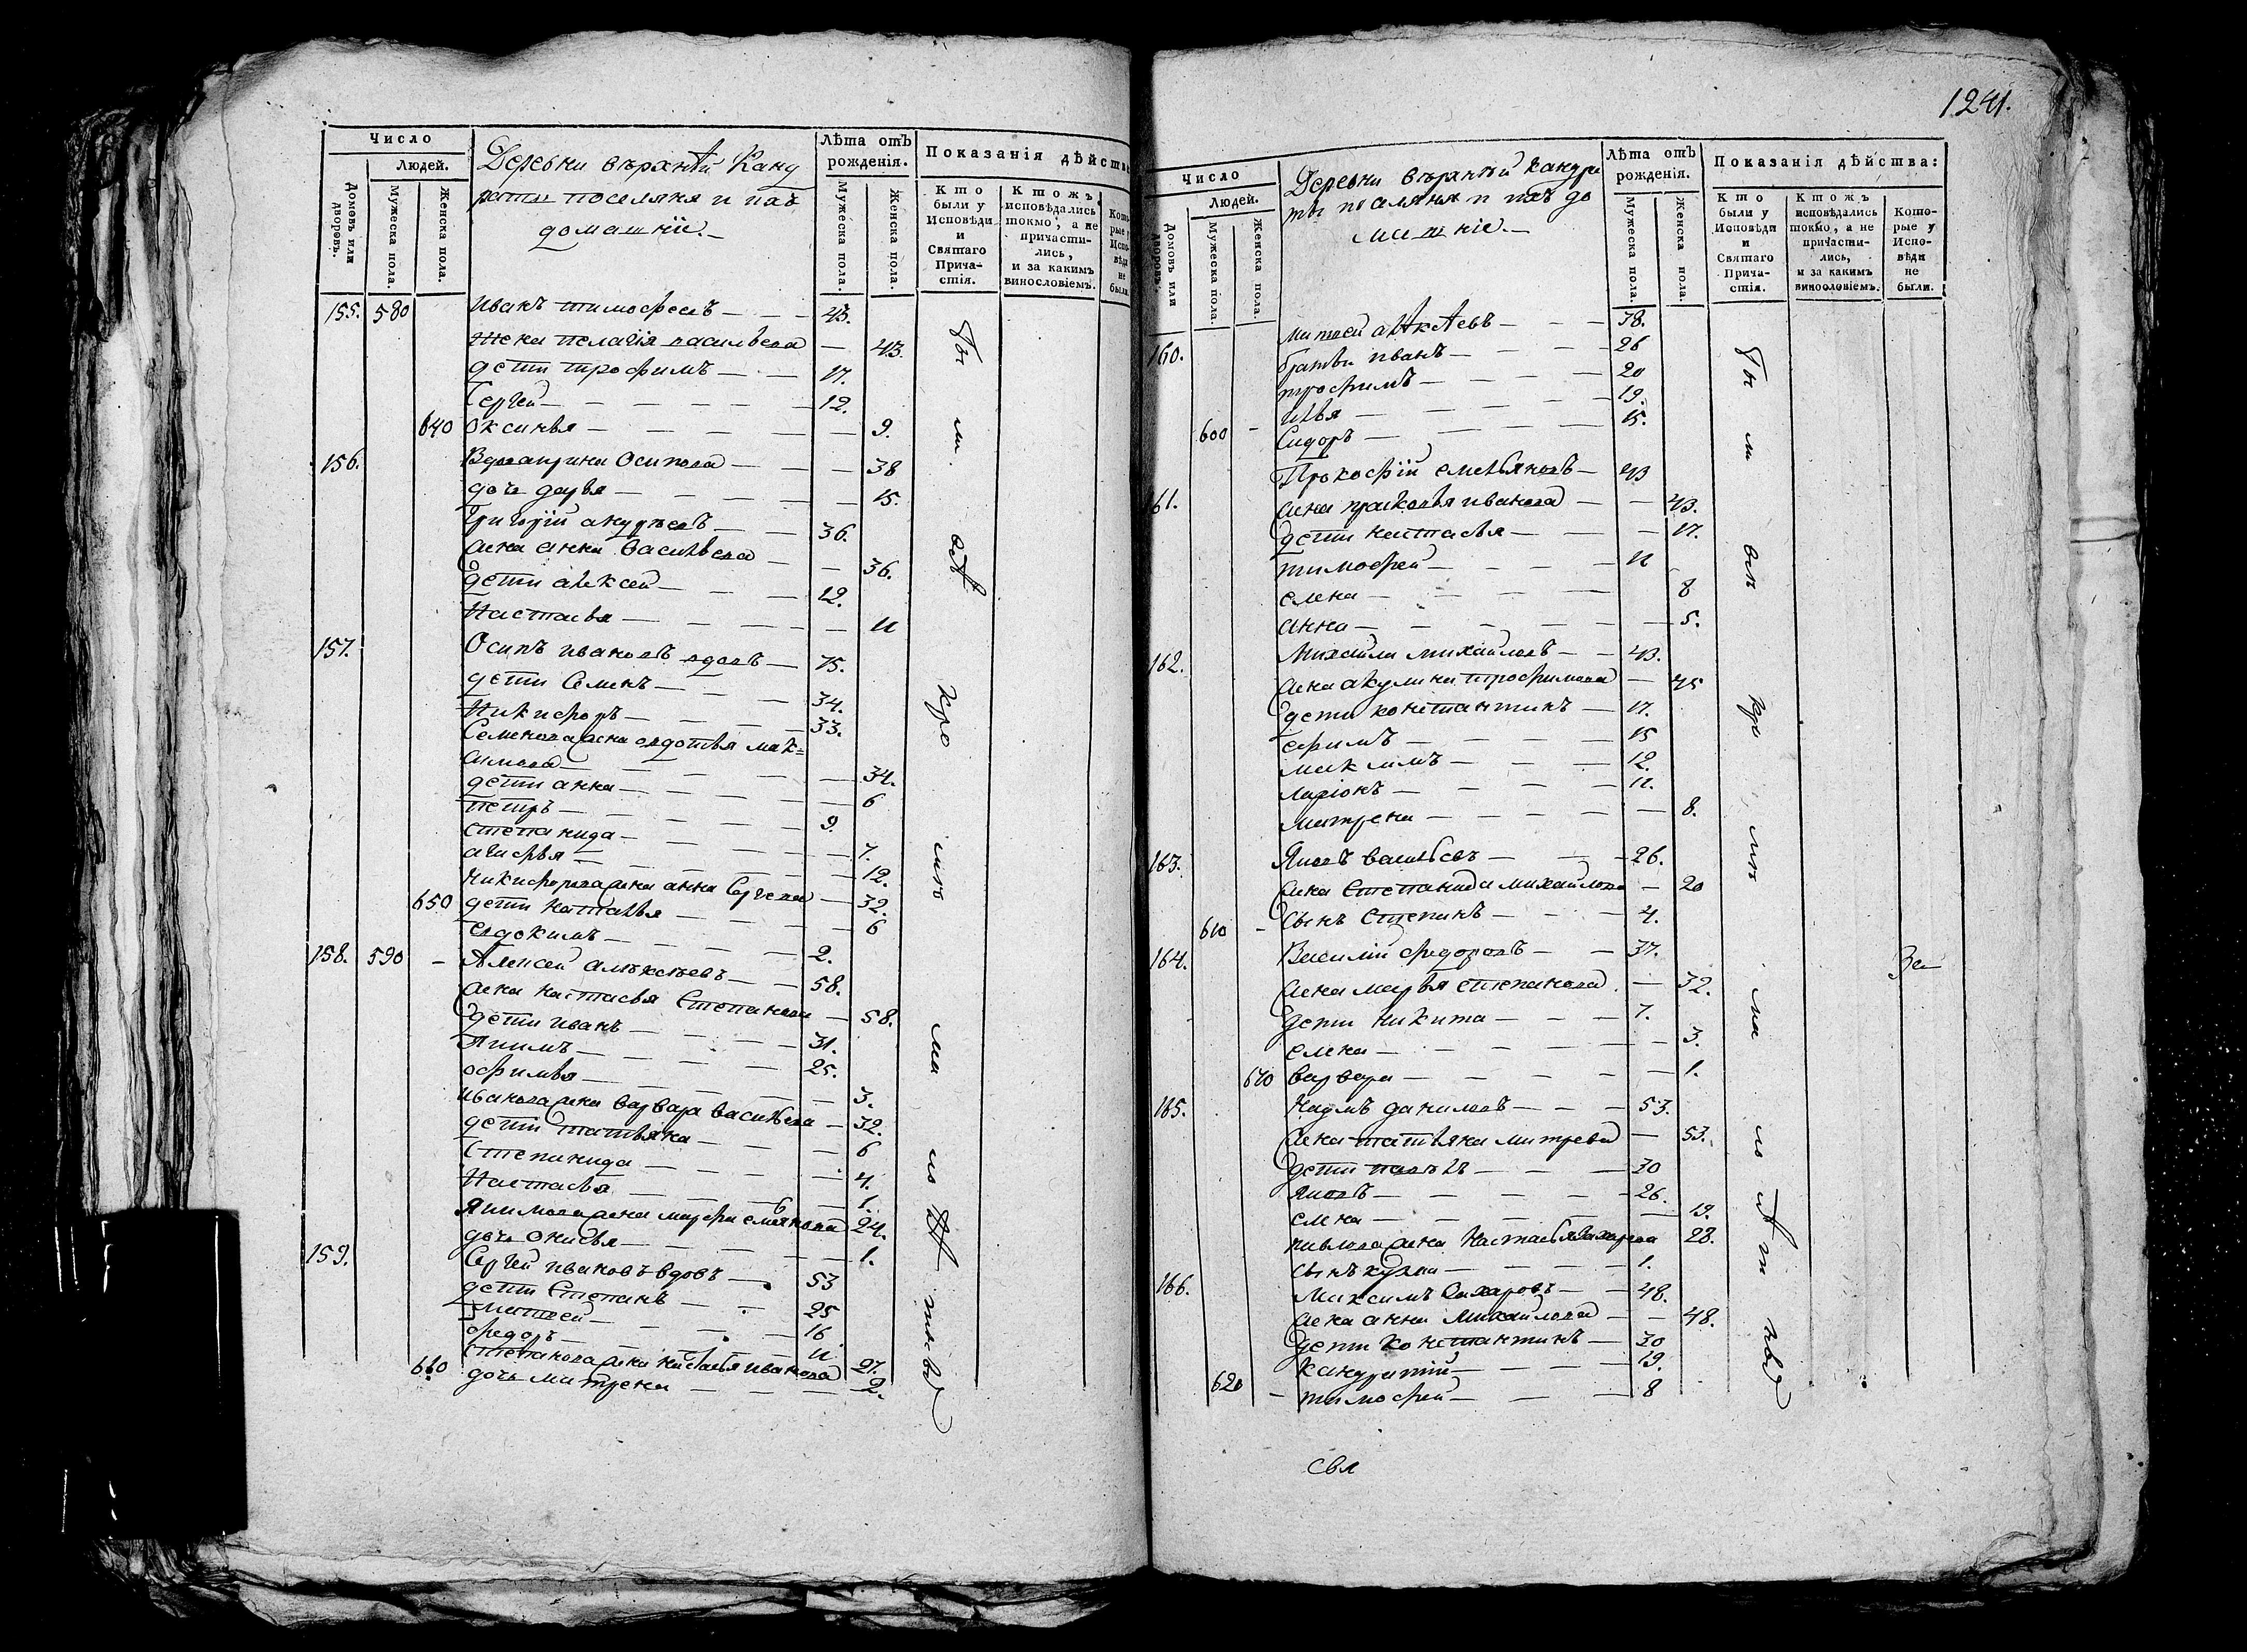 Число
Людей.
Домовъ или дворовъ.
Мужеска пола.
Женска пола.
Деревни върхнѣй Канд
раты поселяня и ихъ
домашніе.
Лѣта отъ рожденія.
Мужеска пола.
Женска пола.
Показанія дѣйств
Кто были у Исповѣди и Святаго Причастія.
Ктожъ исповѣдались токмо, а не причастились, и за какимъ винословіемъ.
Которые у Исповѣди не были.
155. 580 Иванъ тимофеевъ 43.
Жена пелагія васильева 43.
дети трофимъ 17.
Сергей 12.
640 Оксинья 9.
156. Вдова ирина Осипова 38
дочь дарья 15.
Григорій андреевъ 36.
жена анна Васильева 36.
дети алексей 12.
Настасья 11
157. Осипъ ивановъ вдовъ 75.
дети Семенъ 34.
Никифоръ 33.
Семенова жена авдотья мак=
симова 34.
дети анна 6
петръ 9.
степанида 7.
агафья 12.
Никифорова жена анна Сергеева 32.
650 дети наталья 6
евдокимъ 2.
158. 590 Алексей алексѣевъ 58.
жена настасья Степанова 58.
дети иванъ 31.
Якимъ 25.
офимья 3.
иванова жена варвара васильева 32.
дети татьяна 6
Степанида 4.
Настасья 1.
Якимова жена марфа емельянова 24.
дочь Анисья 1.
159. Сергей ивановъ вдовъ 53
дети Степанъ 25
матвей 16
федоръ 11
степанова жена настасья иванова 27.
660 дочь матрена 2.
1241.
Число
Людей.
Домовъ или дворовъ.
Мужеска пола.
Женска пола.
Деревни върхнѣй кандра
ты поселяня и ихъ до
машніе.
Лѣта отъ рожденія.
Мужеска пола.
Женска пола.
Показанія дѣйства:
Кто были у Исповѣди и Святаго Причастія.
Ктожъ исповѣдались токмо, а не причастились, и за какимъ винословіемъ.
Которые у Исповѣди не были.
160. матвей алексѣевъ 38.
братьи иванъ 26
трофимъ 20
илья 19.
600 Сидоръ 15.
161. Прокофій емельяновъ 43
жена прасковья иванова 43.
дети настасья 17.
тимофей 11
елена 8
анна 5.
162. Михаила михайловъ 43.
жена акулина трофимова 45
дети константинъ 17.
ефимъ 15
максимъ 12.
ларіонъ 11.
матрена 8.
163. Яковъ васильевъ 26.
жена Степанида михайлова 20
610 сынъ Степанъ 4.
164. Василій федоровъ 37.
жена марья степанова 32.
дети никита 7.
елена 3.
670 варвара 1.
165. Наумъ даниловъ 53.
жена татьяна митрева 53.
дети павелъ 30
яковъ 26.
елена 19.
павлова жена настасья захарова 28.
сынъ кузма 1.
166. Максимъ Захаровъ 48.
жена анна михайлова 48.
дети константинъ 30
кандратій 19.
620 тимофей 8